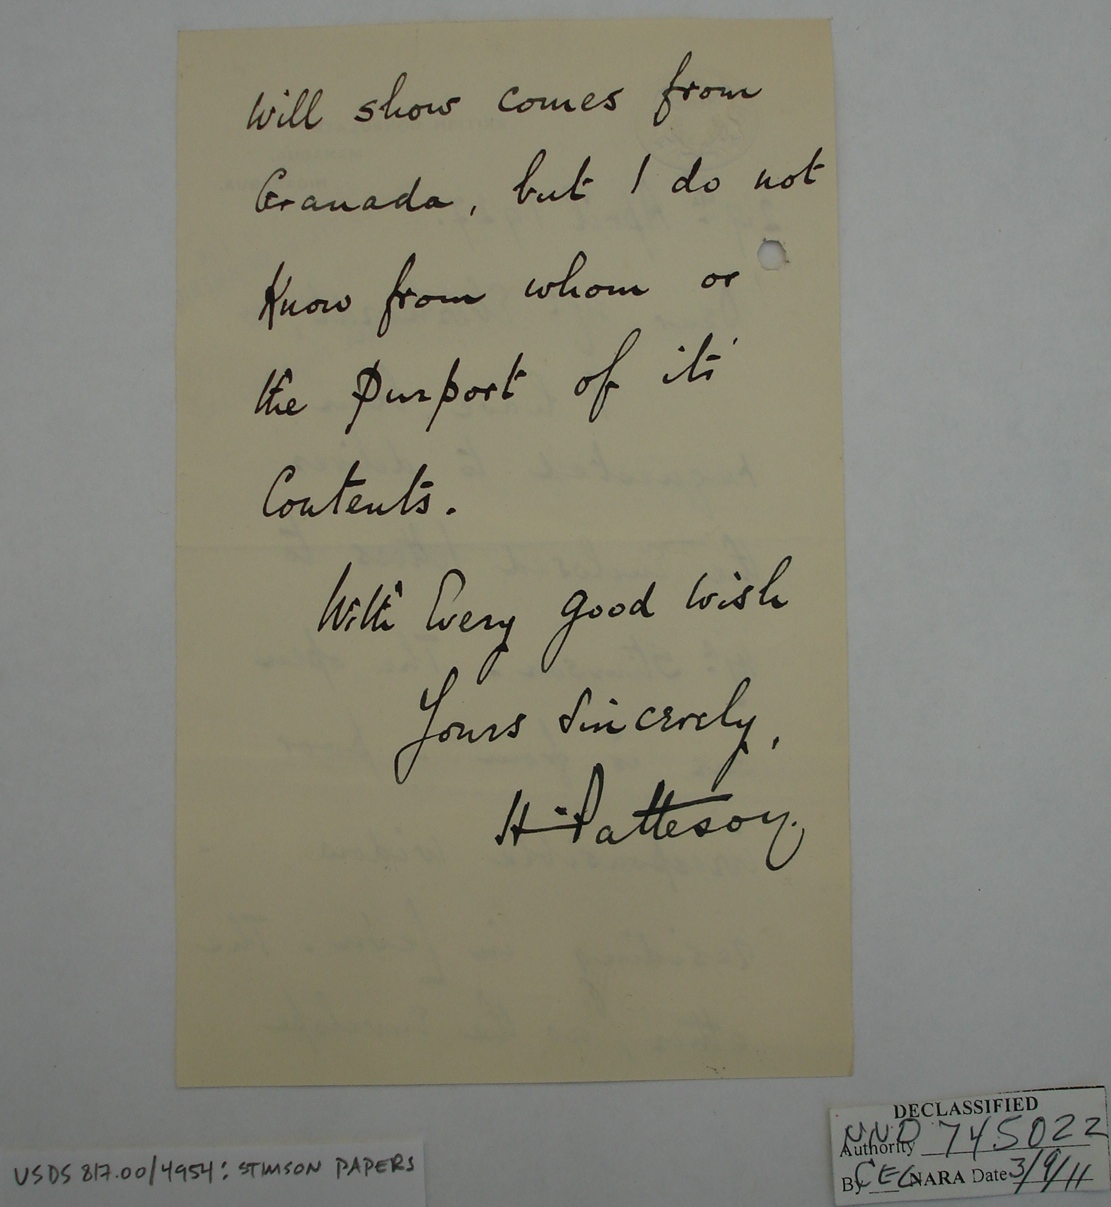 Will show comes from
Granada, but I do not
Know from whom or
the Purport of its
Contents.
With Every good wish
Yours Sincerely,
H. Patteson.
USDS 817.00/4954: STIMSON PAPERS
DECLASSIFIED
Authority NND 745022
By CEG NARA Date 3/9/11